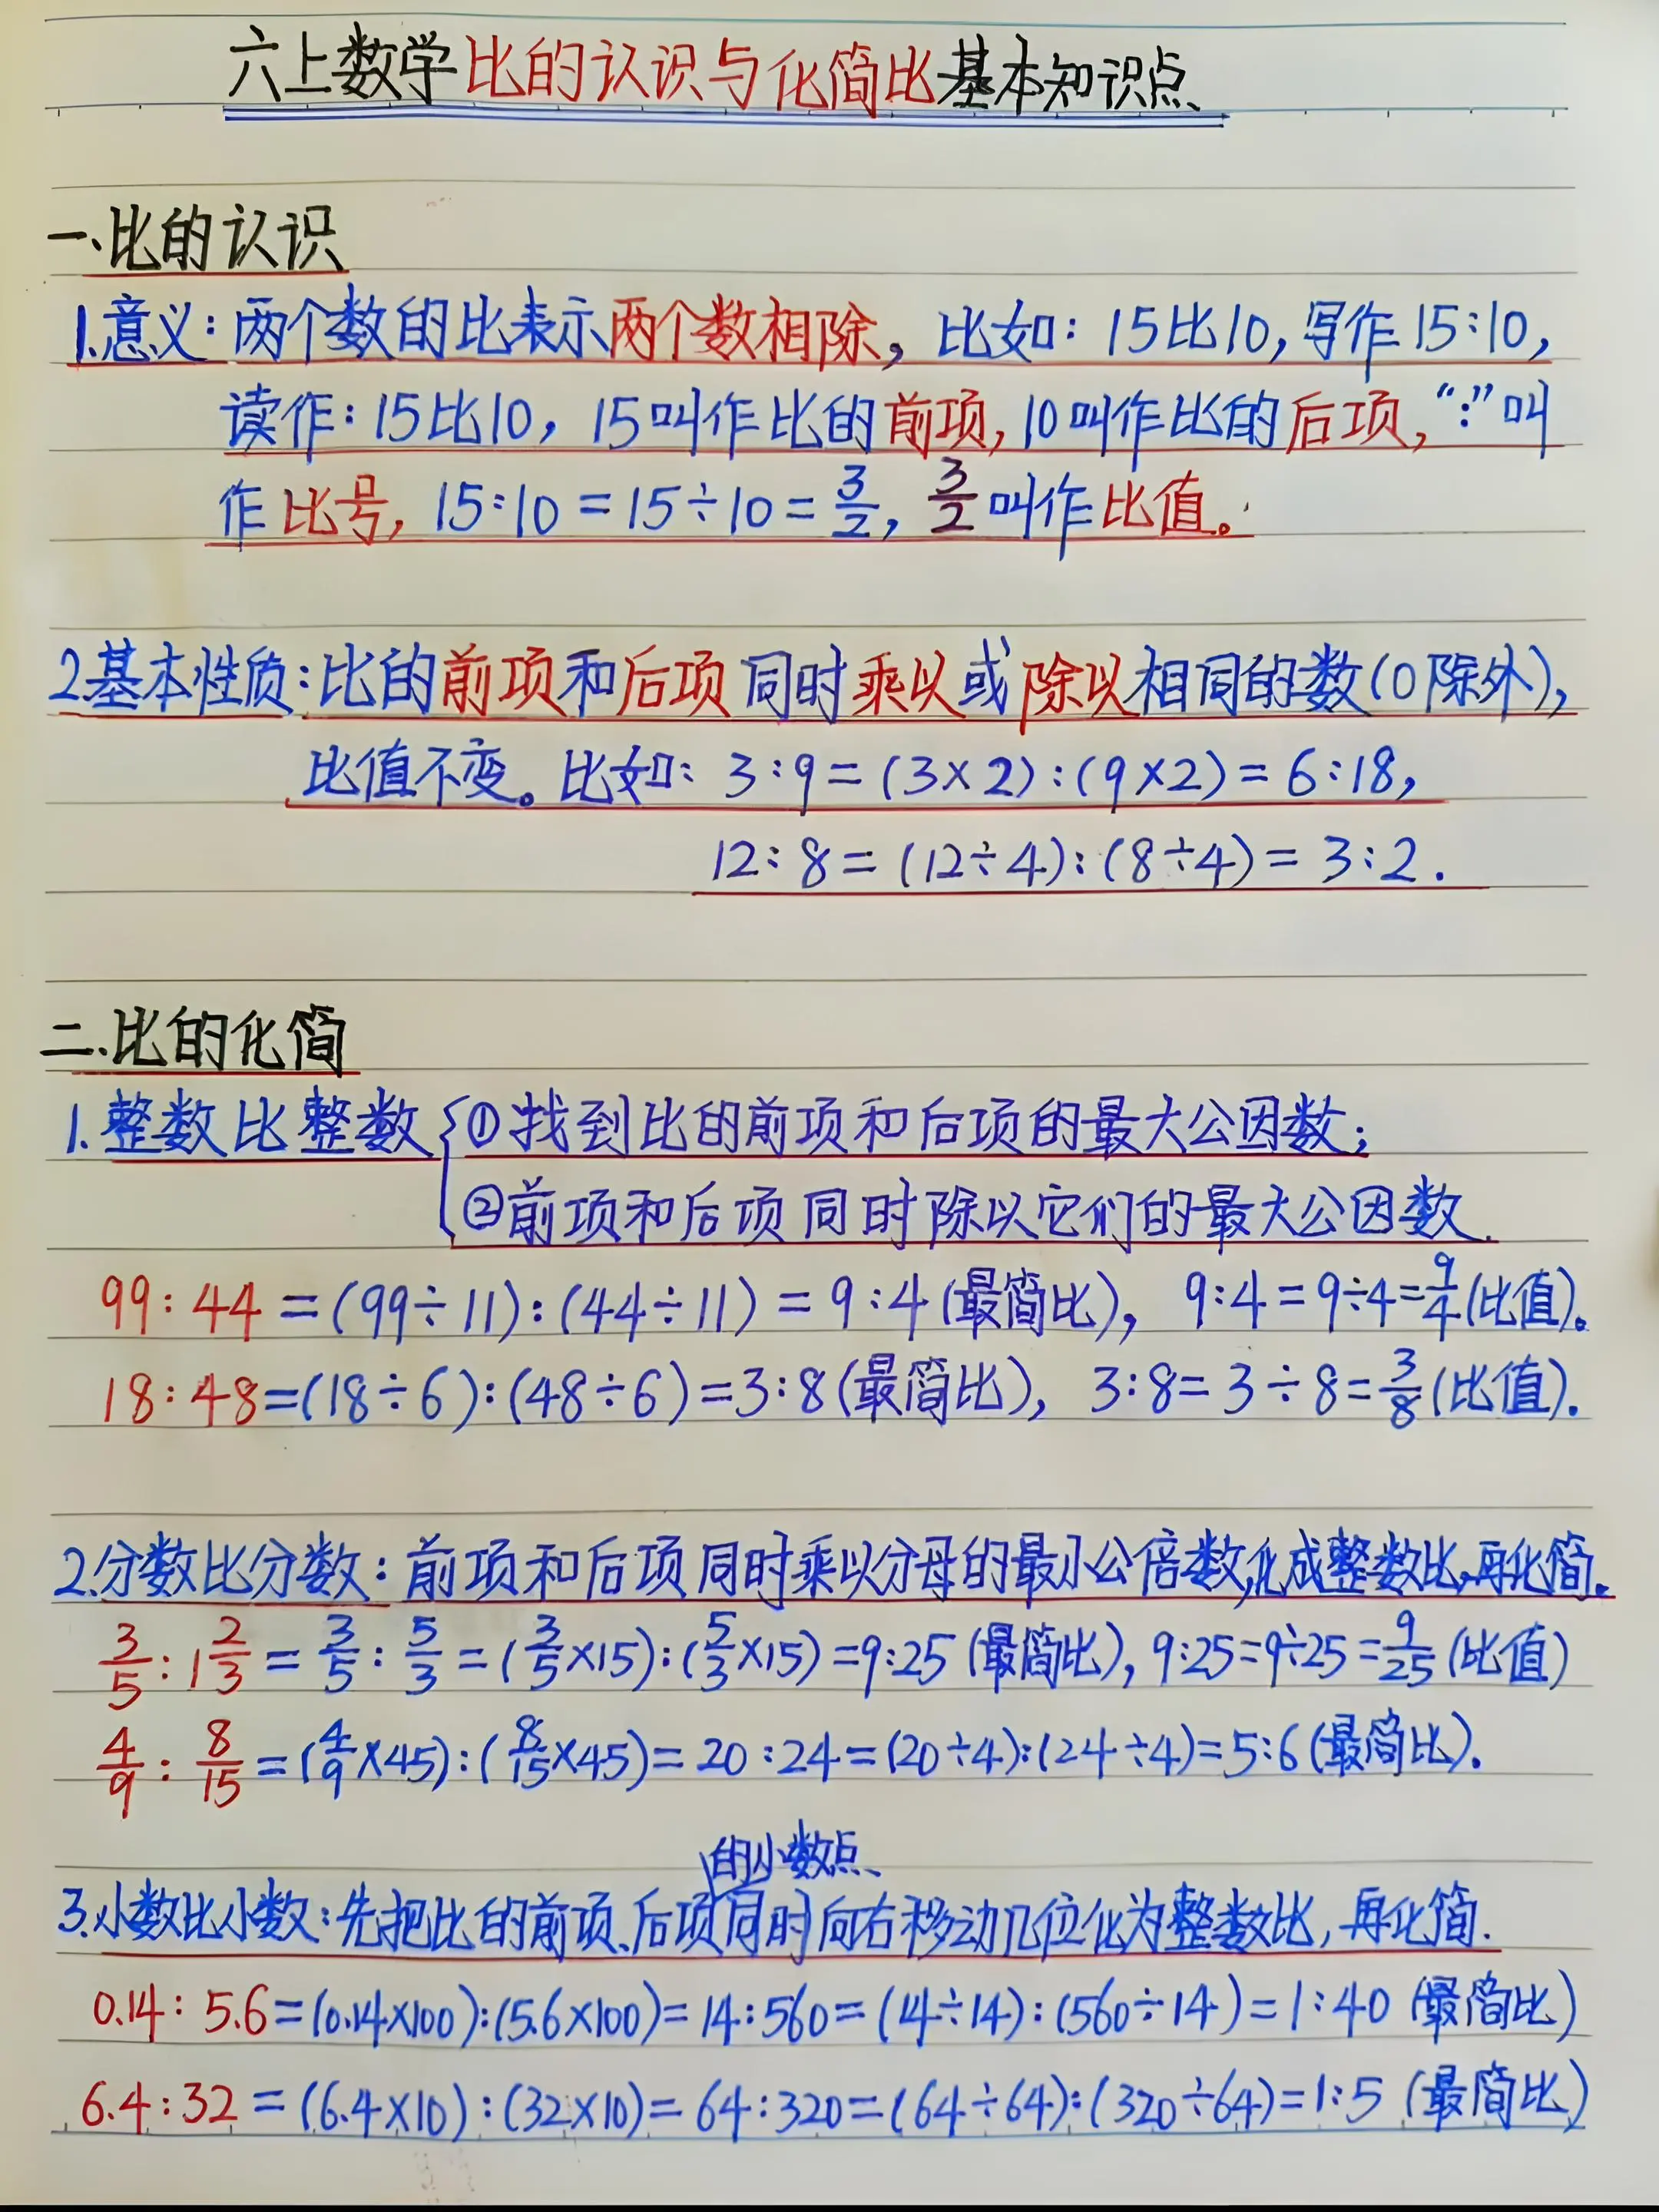 六上数学比的认识与化简比基本知识点
一、比的认识
1.意义：两个数的比表示两个数相除，比如：15比10，写作15:10，
读作：15比10，15叫作比的前项，10叫作比的后项，“:”叫
作比号，15:10=15÷10=3/2，3/2叫作比值。
2.基本性质：比的前项和后项同时乘以或除以相同的数(0除外)，
比值不变。比如：3:9=(3×2):(9×2)=6:18，
12:8=(12÷4):(8÷4)=3:2.
二.比的化简
1.整数比整数{①找到比的前项和后项的最大公因数；
②前项和后项同时除以它们的最大公因数.
99:44=(99÷11):(44÷11)=9:4(最简比)，9:4=9÷4=9/4(比值)。
18:48=(18÷6):(48÷6)=3:8(最简比)，3:8=3÷8=3/8(比值).
2.分数比分数：前项和后项同时乘以分母的最小公倍数,化成整数比,再化简。
3/5:1 2/3=3/5:5/3=(3/5×15):(5/3×15)=9:25(最简比),9:25=9÷25=9/25(比值)
4/9:8/15=(4/9×45):(8/15×45)=20:24=(20÷4):(24÷4)=5:6(最简比).
的小数点
3.小数比小数：先把比的前项、后项同时向右移动几位化为整数比,再化简.
0.14:5.6=(0.14×100):(5.6×100)=14:560=(14÷14):(560÷14)=1:40(最简比)
6.4:32=(6.4×10):(32×10)=64:320=(64÷64):(320÷64)=1:5(最简比)